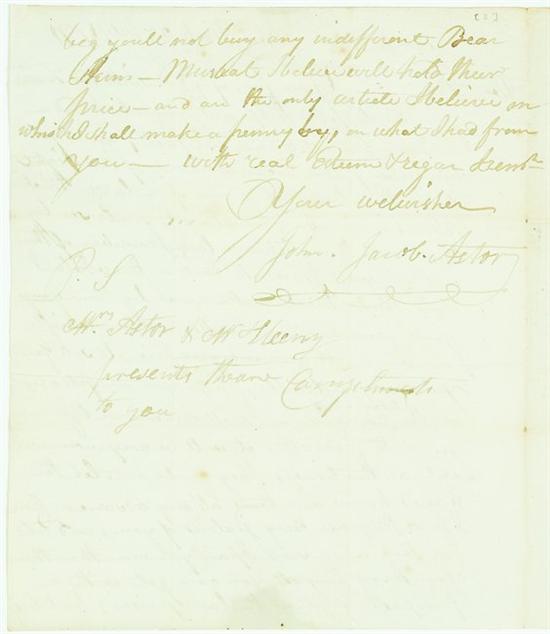 [2]
beg youll not buy any indifferent Bear
Skins — Muskrat I beleive will hold their
price — and are the only article I beleive on
which I shall make a penny by, on what I had from
you — with real Esteem & regar
Your welwisher
John. Jacob. Astor
P. S
Mrs Astor & Mr Heeny
presents thare Compliments
to you